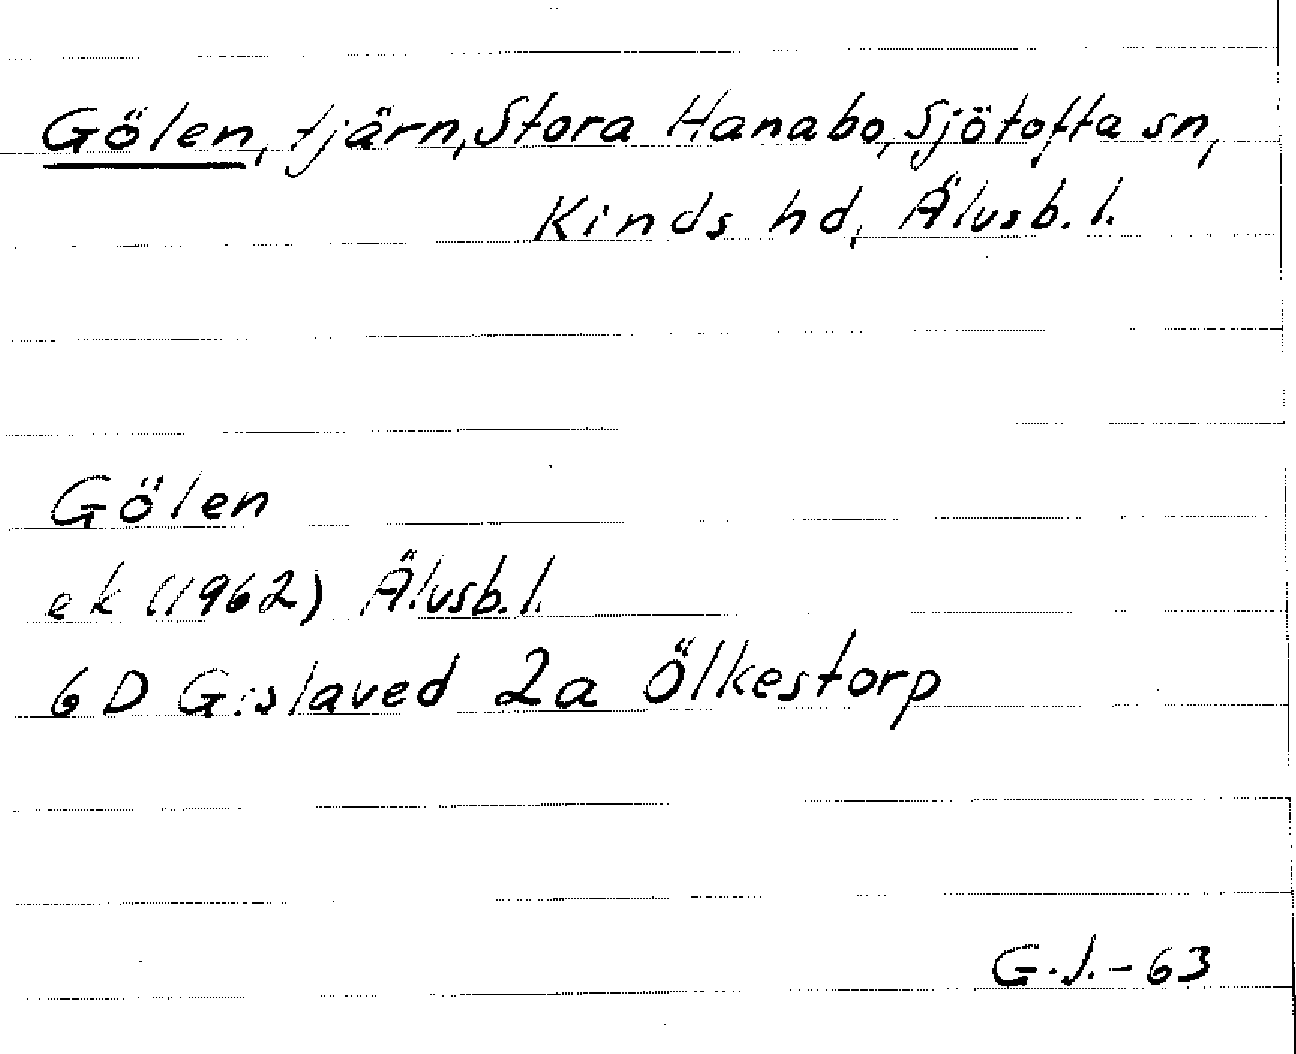 Gölen, tjärn, Stora Hanabo, Sjötofta sn,
Kinds hd, Älvsb. l.
Gölen
ek (1962) Älvsb. l.
6 D Gislaved 2a Ölkestorp
G.J.-63